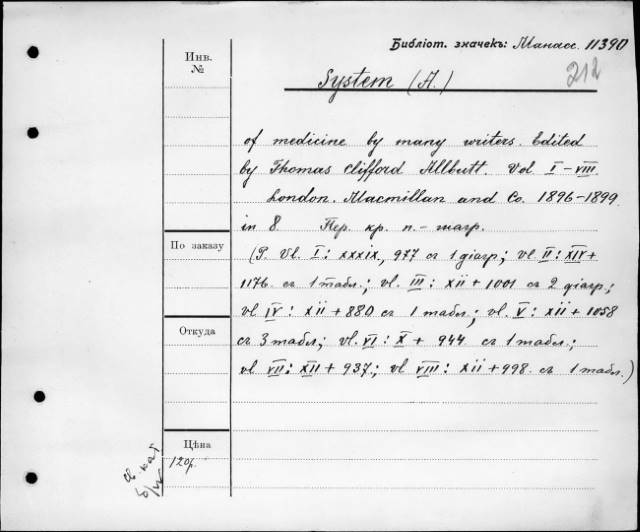 Библіот. значекъ: Манасс. 11390
212
Инв.
№
System (A.)
of medicine by many writers. Edited
by Thomas Clifford Allbutt. Vol I–VIII.
London. Macmillan and Co. 1896–1899.
in 8. Пер. кр. п.-шагр.
По заказу
(P. Vl. I: xxxix, 977 съ 1 діагр; vl. II: XIV+
1176 съ 1 табл.; vl. III: xii + 1001 съ 2 діагр.;
vl IV: xii + 880 съ 1 табл.; vl. V: xii + 1058
Откуда
съ 3 табл; vl. VI: X + 944 съ 1 табл.;
vl VII: XII + 937; vl VIII: xii + 998. съ 1 табл.)
Цѣна
120р.
кат